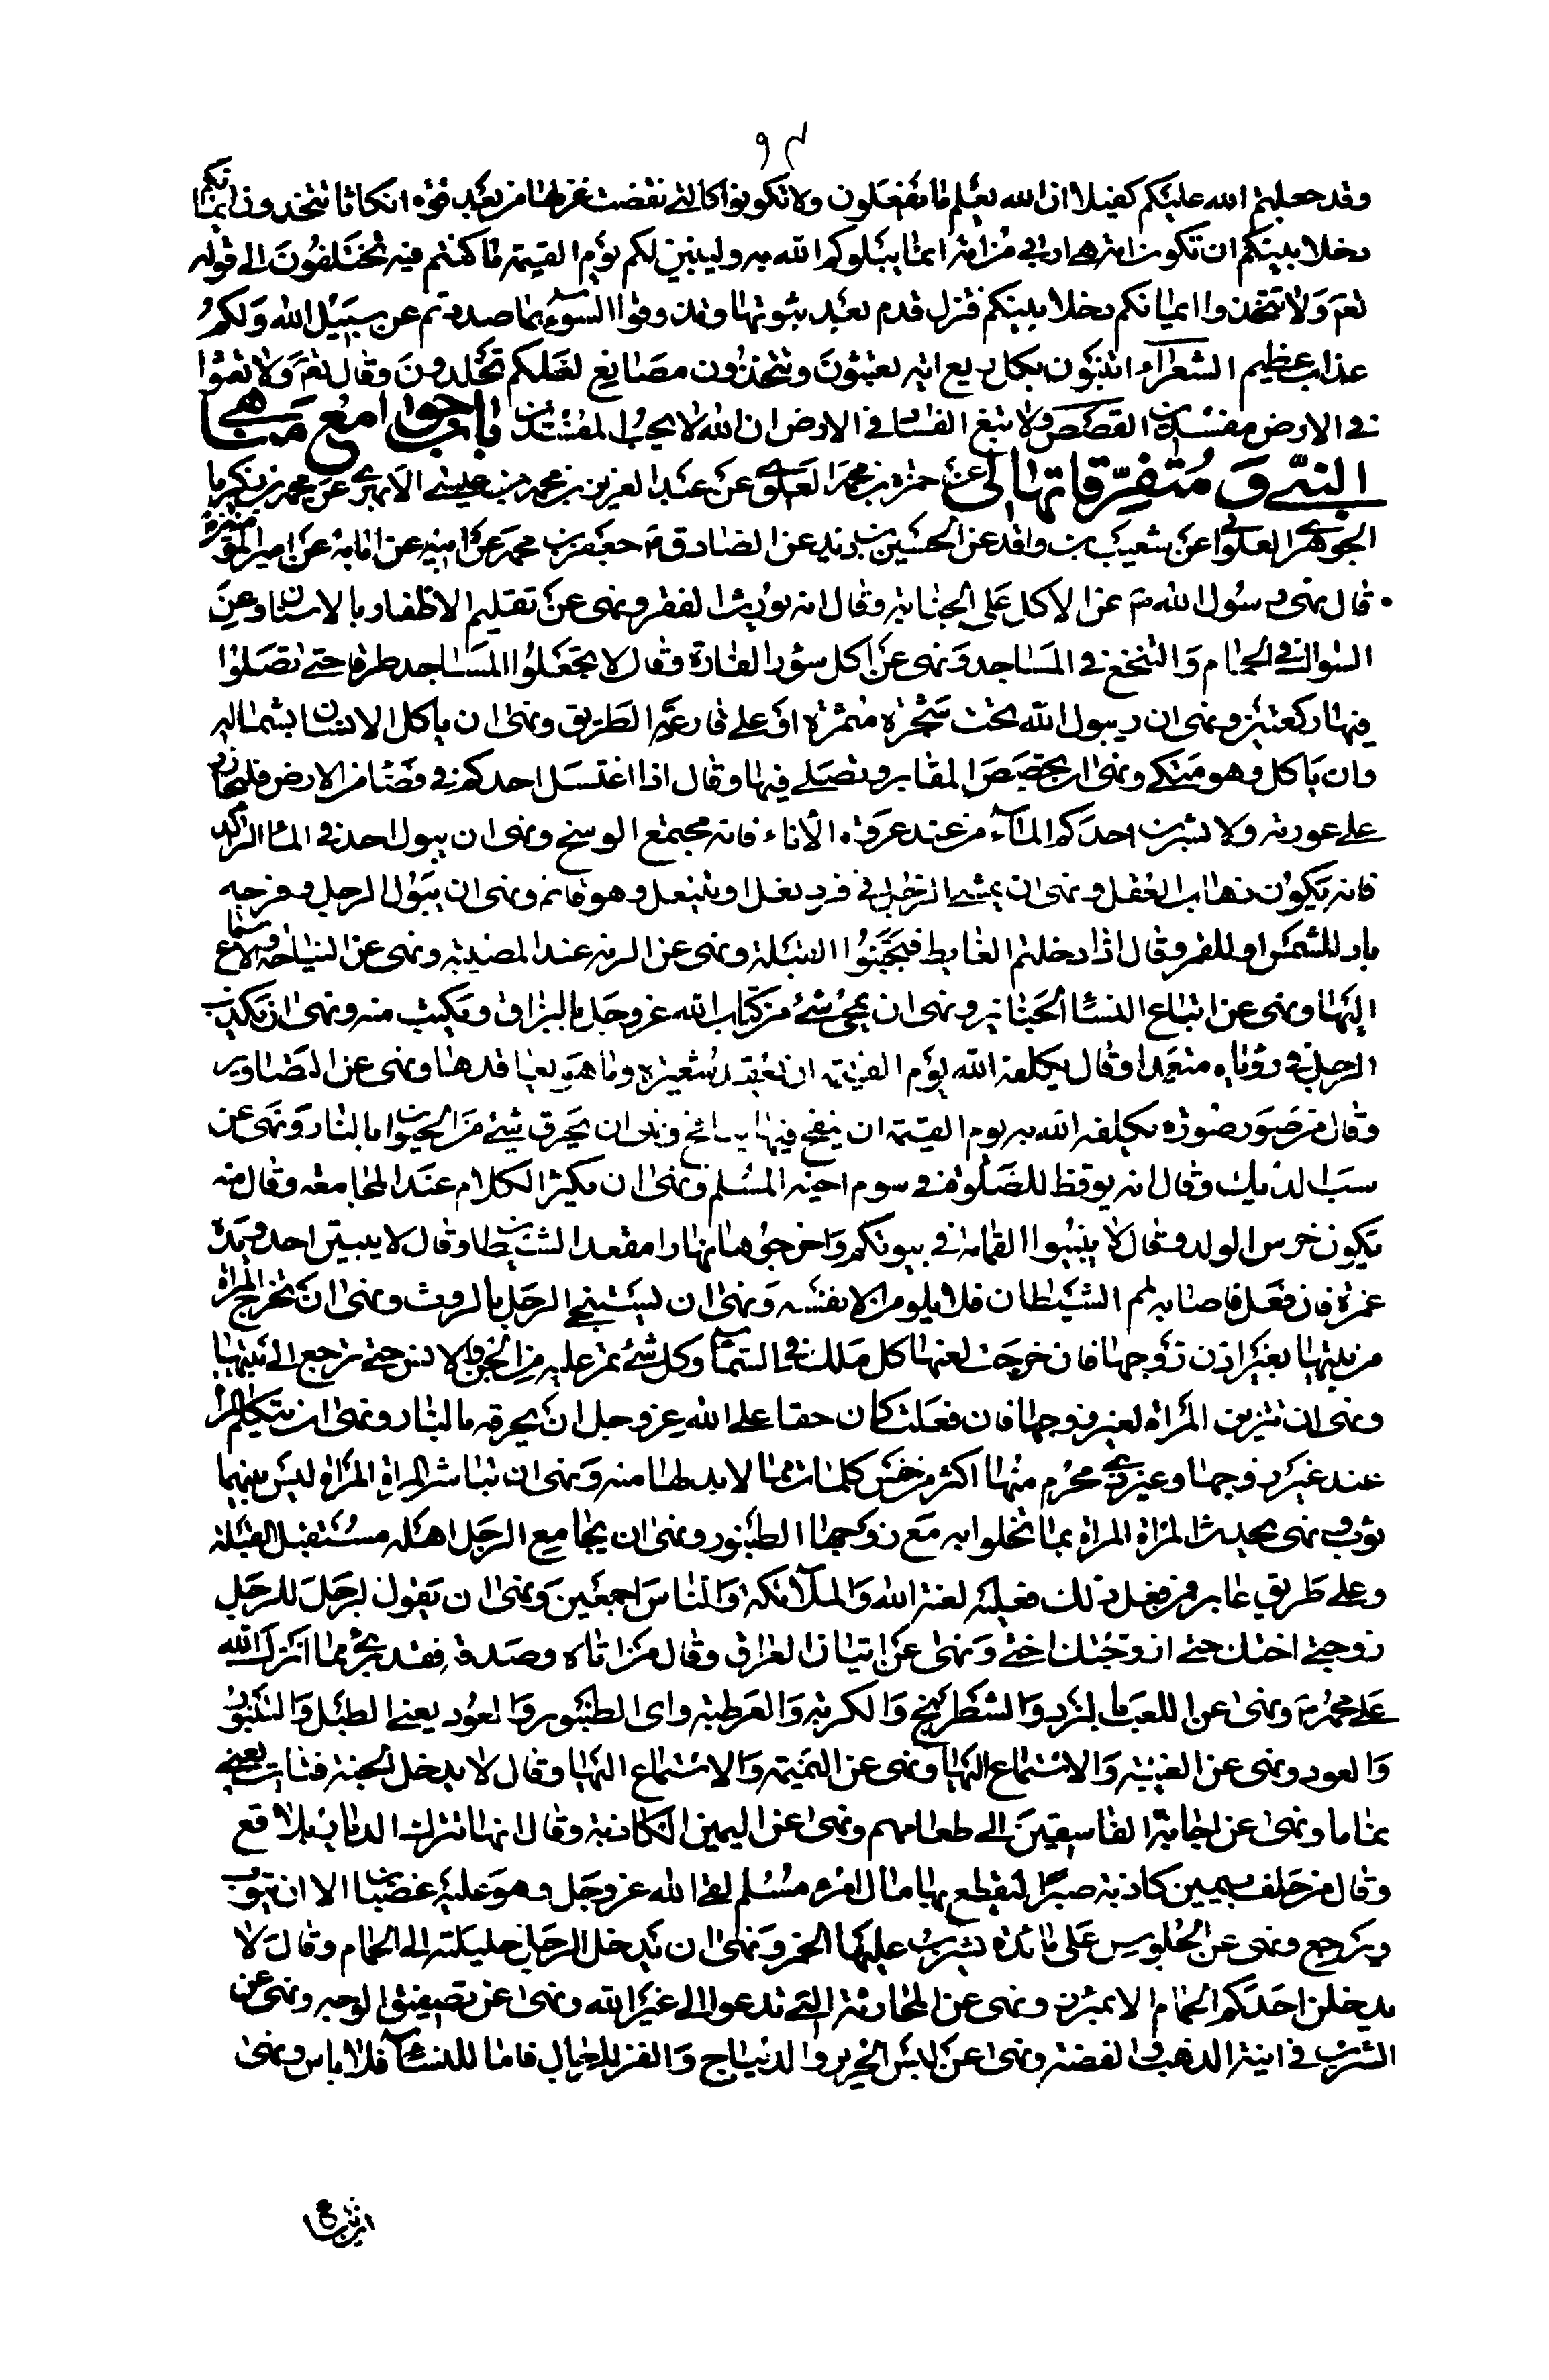 ٩٤
وقد جعلتم الله عليكم كفيلا ان الله يعلم ما تفعلون ولا تكونوا كالتي نقضت غزلها من بعد قوة انكاثا تتخذون ايمانكم
دخلا بينكم ان تكون امة هي اربى من امة انما يبلوكم الله به وليبينن لكم يوم القيمة ما كنتم فيه تختلفون الى قوله
تعالى ولا تتخذوا ايمانكم دخلا بينكم فتزل قدم بعد ثبوتها وتذوقوا السوء بما صددتم عن سبيل الله ولكم
عذاب عظيم الشعراء اتبنون بكل ريع اية تعبثون وتتخذون مصانع لعلكم تخلدون وقال تعالى ولا تعثوا
في الارض مفسدين القصص ولا تبغ الفساد في الارض ان الله لا يحب المفسدين باب جوامع مناهي
النبي ص ومتفرقاتها لي عن حمزة بن محمد العلوي عن عبد العزيز بن محمد بن عيسى الابهري عن محمد بن زكريا
الجوهري الغلابي عن شعيب بن واقد عن الحسين بن زيد عن الصادق م جعفر بن محمد عن ابيه عن ابائه عن امير المؤمنين
قال نهى رسول الله ص عن الاكل على الجنابة وقال انه يورث الفقر ونهى عن تقليم الاظفار بالاسنان وعن
السواك في الحمام والتنخع في المساجد ونهى عن اكل سؤر الفارة وقال لا تجعلوا المساجد طرقا حتى تصلوا
فيها ركعتين ونهى ان يبول احد تحت شجرة مثمرة او على قارعة الطريق ونهى ان ياكل الانسان بشماله
وان ياكل وهو متكئ ونهى ان يجصص المقابر وتصلى فيها وقال اذا اغتسل احدكم في فضاء من الارض فليحاذر
على عورته ولا يشربن احدكم الماء من عند عروة الاناء فانه مجتمع الوسخ ونهى ان يبول احد في الماء الراكد
فانه يكون منه ذهاب العقل ونهى ان يمشي الرجل في فرد نعل او يتنعل وهو قائم ونهى ان يبول الرجل وفرجه
باد للشمس او للقمر وقال اذا دخلتم الغايط فتجنبوا القبلة ونهى عن الرنة عند المصيبة ونهى عن النياحة والاستماع
اليها ونهى عن اتباع النساء الجنايز ونهى ان يمحى شئ من كتاب الله عز وجل بالبزاق ويكتب منه ونهى ان يكذب
الرجل في رؤياه متعمدا وقال يكلفه الله يوم القيمة ان يعقد شعيرة وما هو بعاقدها ونهى عن التصاوير
وقال من صور صورة كلفه الله يوم القيمة ان ينفخ فيها وليس بنافخ ونهى ان يحرق شئ من الحيوان بالنار ونهى عن
سب الديك وقال انه يوقظ للصلوة ونهى ان يدخل الرجل في سوم اخيه المسلم ونهى ان يكثر الكلام عند المجامعة وقال منه
يكون خرس الولد وقال لا تبيتوا القمامة في بيوتكم واخرجوها نهارا فانها مقعد الشيطان وقال لا يبيتن احد ويده
غمرة فان فعل فاصابه لمم الشيطان فلا يلومن الا نفسه ونهى ان يستنجي الرجل بالروث ونهى ان تخرج المراة
من بيتها بغير اذن زوجها فان خرجت لعنها كل ملك في السماء وكل شئ تمر عليه من الجن والانس حتى ترجع الى بيتها
ونهى ان تتزين المراة لغير زوجها فان فعلت كان حقا على الله عز وجل ان يحرقه بالنار ونهى ان تتكلم المراة
عند غير زوجها وغير ذي محرم منها اكثر من خمس كلمات مما لا بد لها منه ونهى ان تباشر المراة المراة ليس بينهما
ثوب ونهى ان تحدث المراة المراة بما تخلوا به مع زوجها ونهى ان يجامع الرجل اهله مستقبل القبلة
وعلى طريق عامر فمن فعل ذلك فعليه لعنة الله والملائكة والناس اجمعين ونهى ان يقول الرجل للرجل
زوجني اختك حتى ازوجك اختي ونهى عن اتيان العراف وقال من اتاه وصدقه فقد برئ مما انزل الله
على محمد ص ونهى عن اللعب بالنرد والشطرنج والكوبة والعرطبة واي الطنبور والعود يعني الطبل والطنبور
والعود ونهى عن الغيبة والاستماع اليها ونهى عن النميمة والاستماع اليها وقال لا يدخل الجنة قتات يعني
نماما ونهى عن اجابة الفاسقين الى طعامهم ونهى عن اليمين الكاذبة وقال انها تترك الديار بلاقع
وقال من حلف بيمين كاذبة صبرا ليقطع بها مال امرء مسلم لقي الله عز وجل وهو عليه غضبان الا ان يتوب
ويرجع ونهى عن الجلوس على مائدة يشرب عليها الخمر ونهى ان يدخل الرجل حليلته الى الحمام وقال لا
يدخلن احدكم الحمام الا بمئزر ونهى عن المحادثة التي تدعوا الى غير الله ونهى عن تصفيق الوجه ونهى عن
الشرب في انية الذهب والفضة ونهى عن لبس الحرير والديباج والقز للرجال فاما للنساء فلا باس ونهى
ان تباع